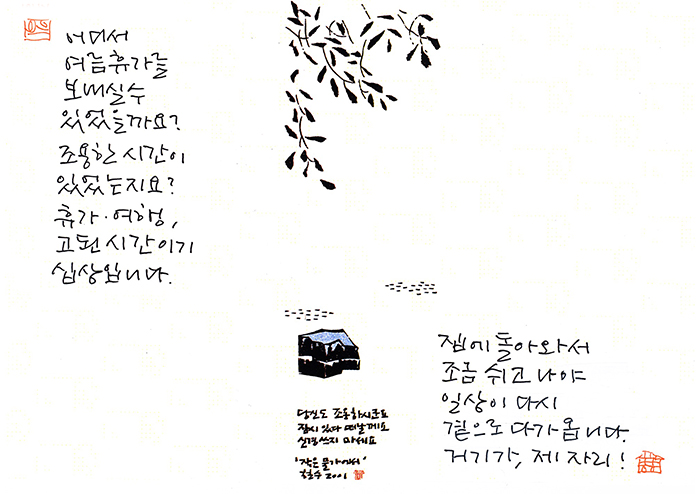 어디서
여름휴가를
보내실수
있었을까요?
조용한 시간이
있었는지요?
휴가·여행,
고된 시간이기
십상입니다.
당신도 조용하시군요
잠시 있다 떠날께요
신경쓰지 마세요
'작은 물가에서'
철수 2001
집에 돌아와서
조금 쉬고 나야
일상이 다시
곁으로 다가옵니다.
거기가, 제 자리!